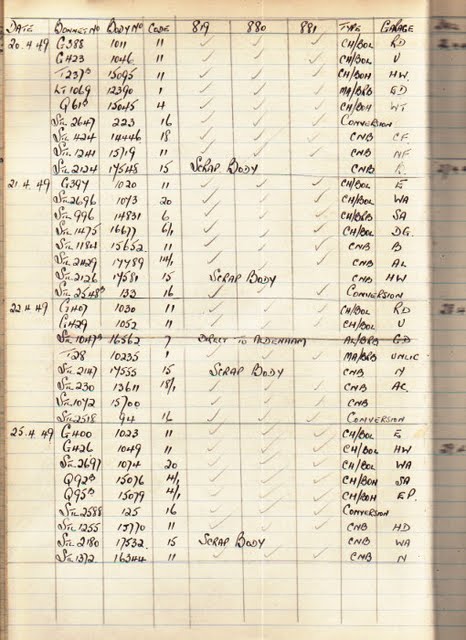 DATE BONNET NO BODY NO CODE 819 880 881 TYPE GARAGE
20.4.49 G388 1011 11 ✓ ✓ ✓ CH/BOL RD
G423 1046 11 ✓ ✓ ✓ CH/BOL U
T237B 15095 11 ✓ ✓ ✓ CH/BOH HW
LT1069 12390 1 ✓ ✓ ✓ MA/BRB ED
Q61B 15045 4 ✓ ✓ ✓ CH/BOH WT
STL 2647 223 16 ✓ CONVERSION
STL 424 14446 18 ✓ ✓ ✓ CNB CF
STL 1241 15719 11 ✓ ✓ ✓ CNB NF
STL 2124 17548 15 SCRAP BODY CNB
21.4.49 G397 1020 11 ✓ ✓ ✓ CH/BOL E
STL 2696 1073 20 ✓ ✓ ✓ CH/BOL WA
STL 996 14831 6 ✓ ✓ ✓ CH/BRB SA
STL 1475 16677 6/1 ✓ ✓ ✓ CH/BOL DG
STL 1184 15652 11 ✓ ✓ ✓ CNB B
STL 2429 17789 14/1 ✓ ✓ ✓ CNB AL
STL 2126 17581 15 SCRAP BODY CNB HW
STL 2548B 133 16 ✓ CONVERSION
22.4.49 G407 1030 11 ✓ ✓ ✓ CH/BOL RD
G429 1052 11 ✓ ✓ ✓ CH/BOL U
STL 1047B 16562 7 DIRECT TO ALDENHAM AL/BRB GD
T28 10235 1 ✓ ✓ ✓ MA/BRB UNLIC
STL 2147 17555 15 SCRAP BODY CNB N
STL 230 13611 18/1 ✓ ✓ ✓ CNB AC
STL 1072 15700 ✓ ✓ ✓ CNB
STL 2518 94 16 ✓ CONVERSION
25.4.49 G400 1023 11 ✓ ✓ ✓ CH/BOL E
G426 1049 11 ✓ ✓ ✓ CH/BOL HW
STL 2697 1074 20 ✓ ✓ ✓ CH/BOL WA
Q92B 15076 4/1 ✓ ✓ ✓ CH/BOH SA
Q95B 15079 4/1 ✓ ✓ ✓ CH/BOH EP.
STL 2588 125 16 ✓ CONVERSION
STL 1255 15770 11 ✓ ✓ ✓ CNB HD
STL 2180 17532 15 SCRAP BODY CNB WA
STL 1372 16344 11 ✓ ✓ ✓ CNB N